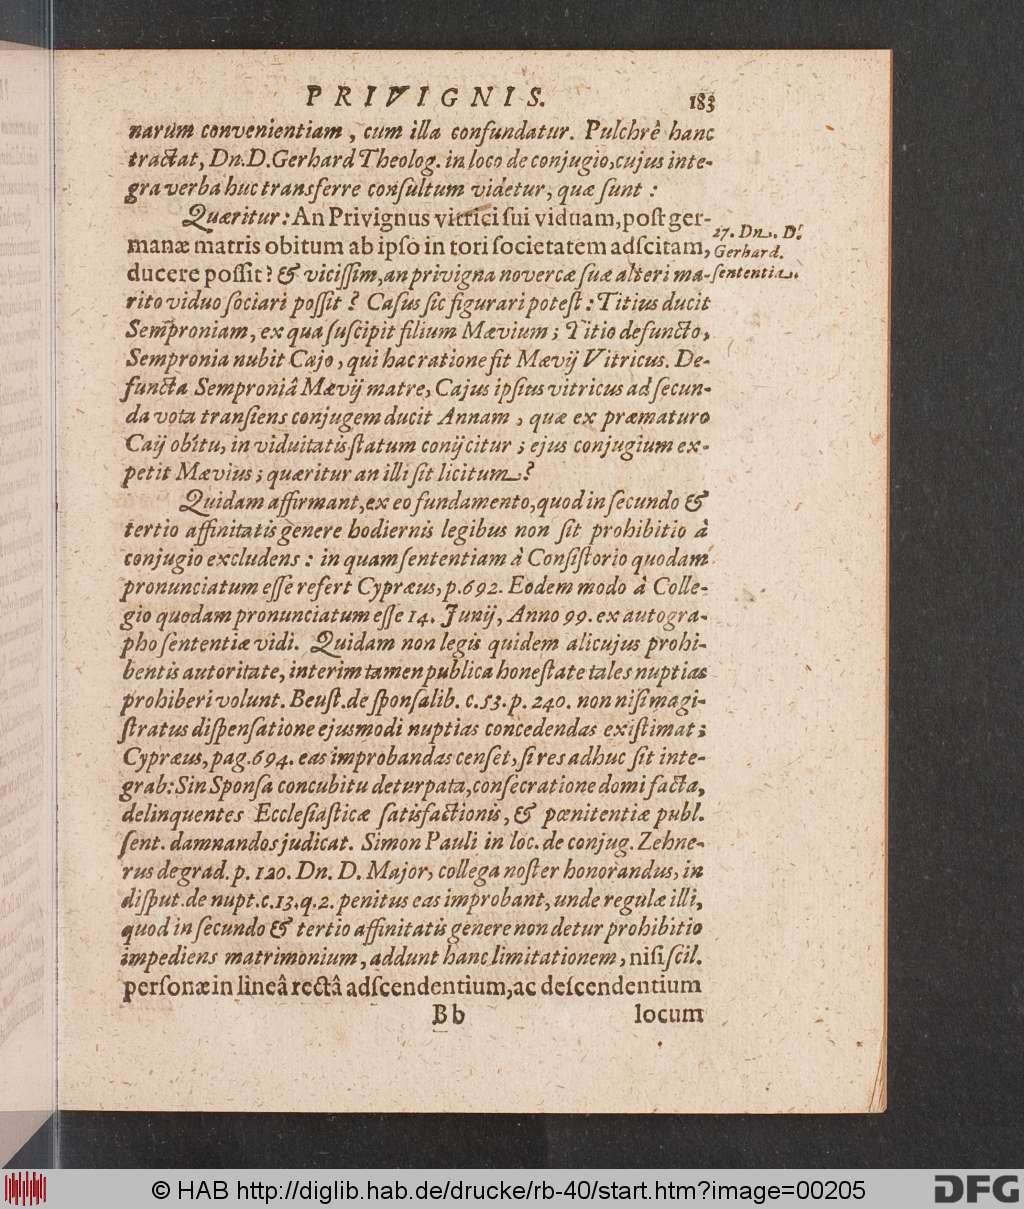 PRIVIGNIS. 183
narum convenientiam, cum illa confundatur. Pulchrê hanc
tractat, Dn. D. Gerhard Theolog. in loco de conjugio, cujus inte-
gra verba huc transferre consultum videtur, quæ sunt:
Quæritur: An Privignus vitrici sui viduam, post ger-
manæ matris obitum ab ipso in tori societatem adscitam,
ducere possit? & vicissim, an privigna novercæ suæ alteri ma-
27. Dn. D.
Gerhard.
sententia.
rito viduo sociari possit? Casus sic figurari potest: Titius ducit
Semproniam, ex qua suscipit filium Mævium; Titio defuncto,
Sempronia nubit Cajo, qui hac ratione fit Mævij Vitricus. De-
functa Semproniâ Mævij matre, Cajus ipsius vitricus ad secun-
da vota transiens conjugem ducit Annam, quæ ex præmaturo
Caij obitu, in viduitatis statum conijcitur; ejus conjugium ex-
petit Mævius; quæritur an illi sit licitum?
Quidam affirmant, ex eo fundamento, quod in secundo &
tertio affinitatis genere hodiernis legibus non sit prohibitio à
conjugio excludens: in quam sententiam à Consistorio quodam
pronunciatum esse refert Cypræus, p. 692. Eodem modo à Colle-
gio quodam pronunciatum esse 14. Junij, Anno 99. ex autogra-
pho sententiæ vidi. Quidam non legis quidem alicujus prohi-
bentis autoritate, interim tamen publica honestate tales nuptias
prohiberi volunt. Beust. de sponsalib. c. 53. p. 240. non nisi magi-
stratus dispensatione ejusmodi nuptias concedendas existimat;
Cypræus, pag. 694. eas improbandas censet, si res adhuc sit inte-
gra b: Sin Sponsa concubitu deturpata, consecratione domi facta,
delinquentes Ecclesiasticæ satisfactionis, & pœnitentiæ publ.
sent. damnandos judicat. Simon Pauli in loc. de conjug. Zehne-
rus de grad. p. 120. Dn. D. Major, collega noster honorandus, in
disput. de nupt. c. 13. q. 2. penitus eas improbant, unde regulæ illi,
quod in secundo & tertio affinitatis genere non detur prohibitio
impediens matrimonium, addunt hanc limitationem, nisi scil.
personæ in lineâ rectâ adscendentium, ac descendentium
Bb locum
© HAB http://diglib.hab.de/drucke/rb-40/start.htm?image=00205
DFG